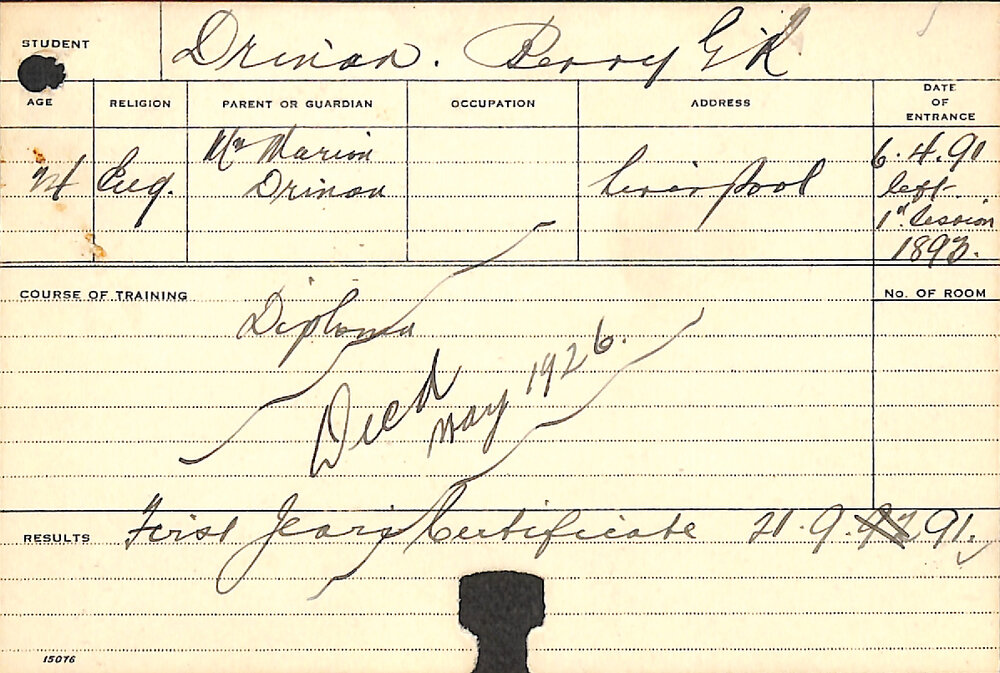 STUDENT
Drinan. Perry G R
AGE RELIGION PARENT OR GUARDIAN OCCUPATION ADDRESS DATE OF ENTRANCE
Mr Marion 6.4.91
Eng. Drinan Liverpool left
1st Session
1893.
COURSE OF TRAINING No. OF ROOM
Diploma
Died
May 1926.
RESULTS First Years Certificate 21.9. 91.
15076